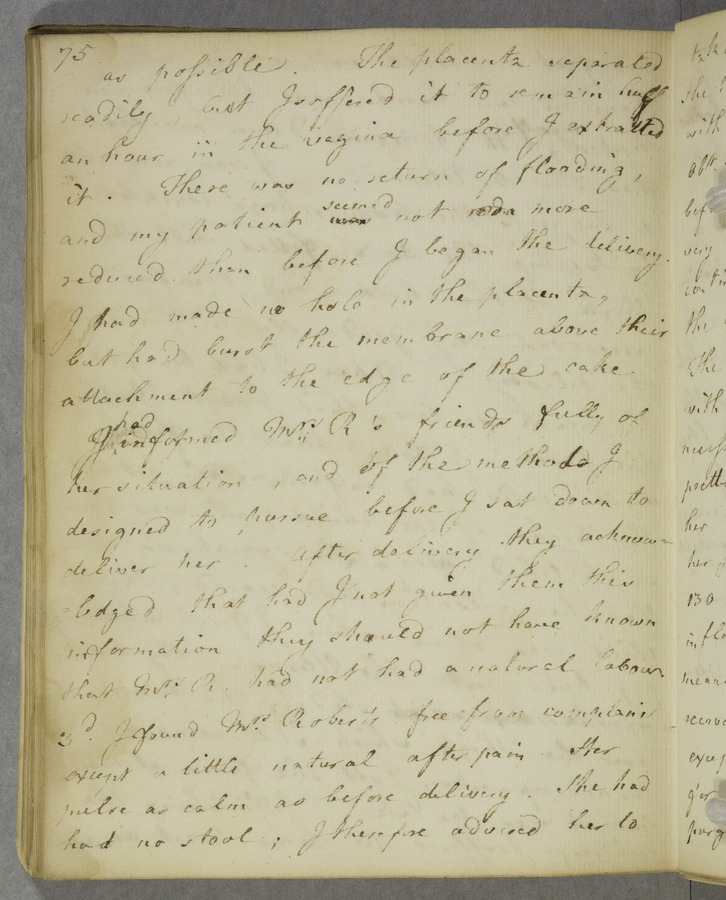 75
as possible. The placenta separated
readily, but I suffered it to remain half
an hour in the vagina before I extracted
it. There was no return of flooding,
and my patient seemed not more
reduced than before I began the delivery.
I had made no hole in the placenta,
but had burst the membrane above their
attachment to the edge of the cake.
I had informed Mrs. R's friends fully of
her situation, and of the methods I
designed to pursue before I sat down to
deliver her. After delivery they acknow=
=ledged that had I not given them this
information they should not have known
that Mrs. R. had not had a natural labour.
3d. I found Mrs. Roberts free from complaint
except a little natural after pain. Her
pulse as calm as before delivery. She had
had no stool; I therefore advised her to
she
with
very
the
The
with
her
130